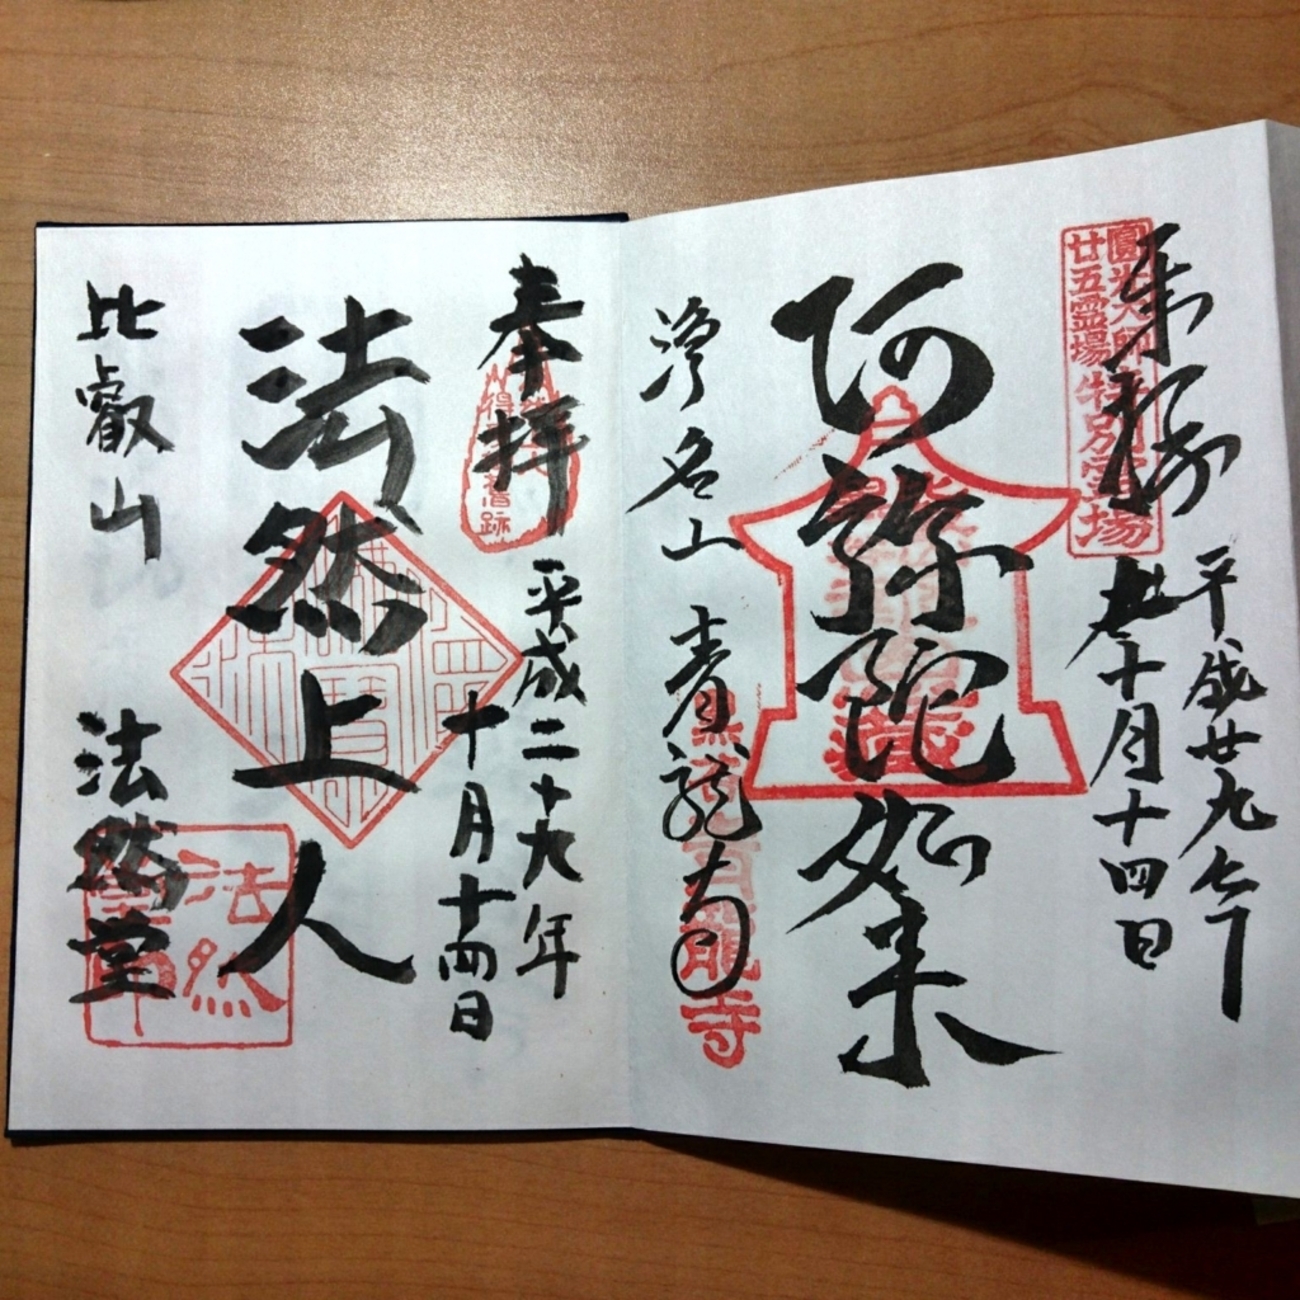 平成廿九年
十月十四日
奉拝
圓光大師
廿五霊場
特別霊場
阿弥陀如来
名山 青龍寺
青龍寺
奉拝
平成二十九年
十月十四日
法然上人
比叡山 法然堂
法然